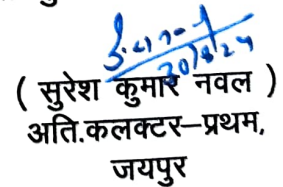 20/8/24
( सुरेश कुमार नवल )
अति.कलक्टर–प्रथम,
जयपुर